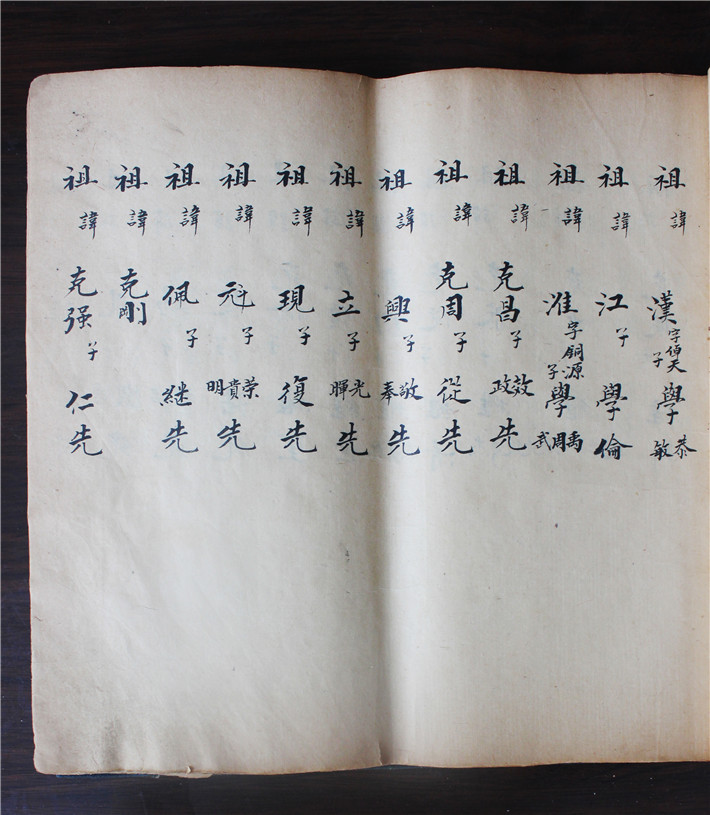 祖諱漢字伸天子學恭敏
祖諱江子學倫
祖諱淮字銅源子學禹周武
祖諱克昌子效政先
祖諱克周子從先
祖諱興子敬奉先
祖諱立子光暉先
祖諱現子復先
祖諱冠子榮貴明先
祖諱佩子継先
祖諱克剛
祖諱克强子仁先